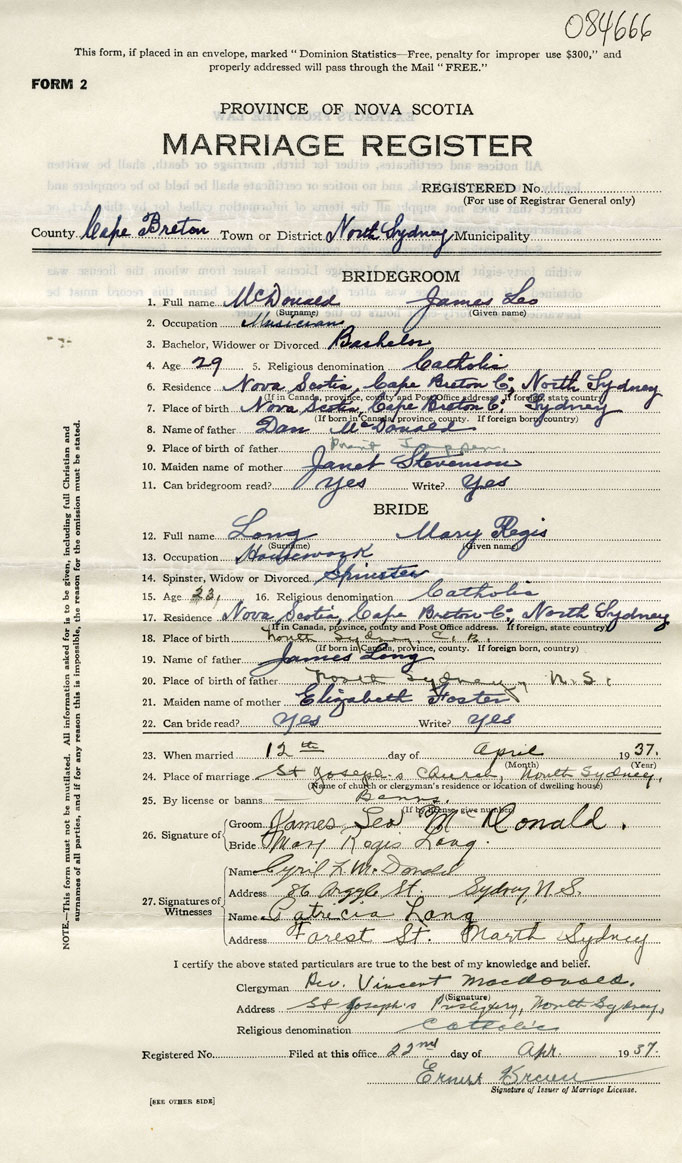 084666
This form, if placed in an envelope, marked "Dominion Statistics—Free, penalty for improper use $300," and
properly addressed will pass through the Mail "FREE."
FORM 2
PROVINCE OF NOVA SCOTIA
MARRIAGE REGISTER
REGISTERED No.
(For use of Registrar General only)
County Cape Breton Town or District North Sydney Municipality
BRIDEGROOM
1. Full name McDonald James Leo
(Surname) (Given name)
2. Occupation Musician
3. Bachelor, Widower or Divorced Bachelor
4. Age 29 5. Religious denomination Catholic
6. Residence Nova Scotia, Cape Breton Co, North Sydney
(If in Canada, province, county and Post Office address. If foreign, state country)
7. Place of birth Nova Scotia, Cape Breton Co. Sydney
(If born in Canada, province, county. If foreign born, country)
8. Name of father Dan McDonald
9. Place of birth of father
10. Maiden name of mother Janet Stevenson
11. Can bridegroom read? Yes Write? Yes
BRIDE
12. Full name Long Mary Regis
(Surname) (Given name)
13. Occupation Housework
14. Spinster, Widow or Divorced Spinster
15. Age 16. Religious denomination Catholic
17. Residence Nova Scotia, Cape Breton Co, North Sydney
(If in Canada, province, county and Post Office address. If foreign, state country)
18. Place of birth North Sydney, C. B.
(If born in Canada, province, county. If foreign born, country)
19. Name of father James Long
20. Place of birth of father North Sydney, N. S.
21. Maiden name of mother Elizabeth Foster
22. Can bride read? Yes Write? Yes
23. When married 12th day of April 1937.
(Month) (Year)
24. Place of marriage St Joseph's Church, North Sydney.
(Name of church or clergyman's residence or location of dwelling house)
25. By license or banns Banns.
(If by license, give number)
26. Signature of
Groom James Leo McDonald.
Bride Mary Regis Long.
27. Signatures of Witnesses
Name Cyril F. McDonald
Address 86 Argyle St. Sydney N.S.
Name Patricia Long
Address Forest St. North Sydney
I certify the above stated particulars are true to the best of my knowledge and belief.
Clergyman Rev. Vincent Macdonald.
(Signature)
Address St Joseph's North Sydney,
Religious denomination Catholic
Registered No. Filed at this office 22nd day of Apr. 1937.
Ernest
Signature of Issuer of Marriage License.
[SEE OTHER SIDE]
NOTE.—This form must not be mutilated. All information asked for is to be given, including full Christian and
surnames of all parties, and if for any reason this is impossible, the reason for the omission must be stated.